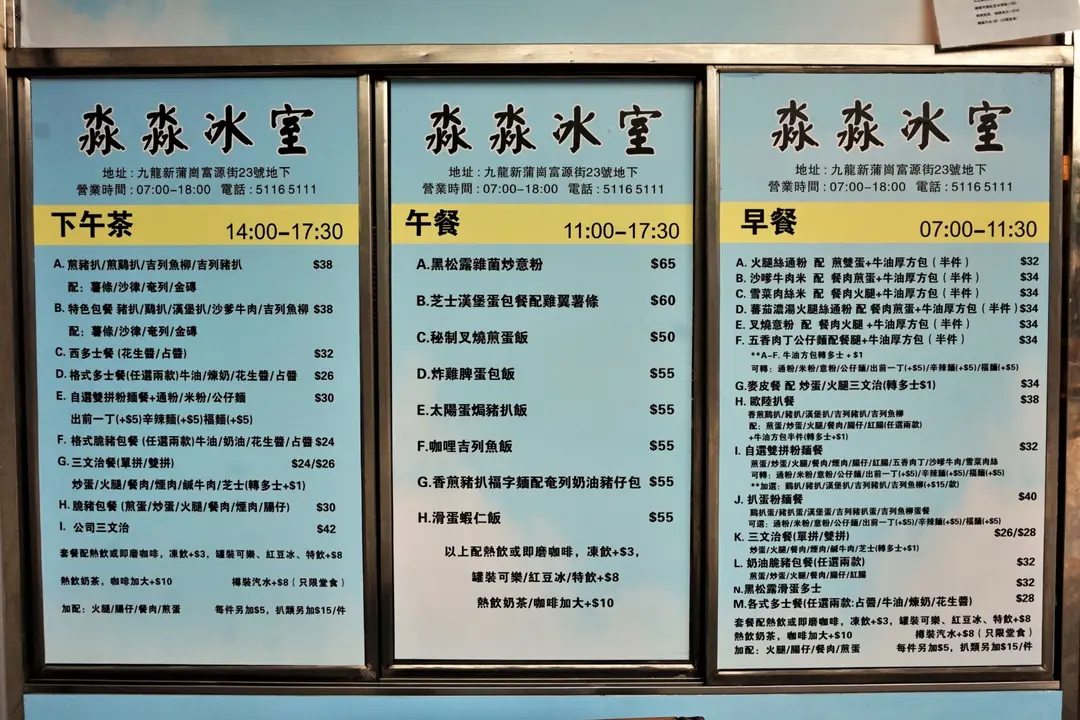 淼淼冰室
地址：九龍新蒲崗富源街23號地下
營業時間：07:00-18:00 電話：5116 5111
下午茶 14:00-17:30
A. 煎豬扒/煎鷄扒/吉列魚柳/吉列豬扒 $38
配：薯條/沙律/奄列/金磚
B. 特色包餐 豬扒/鷄扒/漢堡扒/沙爹牛肉/吉列魚柳 $38
配：薯條/沙律/奄列/金磚
C. 西多士餐(花生醬/占醬) $32
D. 格式多士餐(任選兩款)牛油/煉奶/花生醬/占醬 $26
E. 自選雙拼粉麵餐+通粉/米粉/公仔麵 $30
出前一丁(+$5)辛辣麵(+$5)福麵(+$5)
F. 格式脆豬包餐(任選兩款)牛油/奶油/花生醬/占醬 $24
G. 三文治餐(單拼/雙拼) $24/$26
炒蛋/火腿/餐肉/煙肉/鹹牛肉/芝士(轉多士+$1)
H. 脆豬包餐 (煎蛋/炒蛋/火腿/餐肉/煙肉/腸仔) $30
I. 公司三文治 $42
套餐配熱飲或即磨咖啡，凍飲+$3，罐裝可樂、紅豆冰、特飲+$8
熱飲奶茶，咖啡加大+$10 樽裝汽水+$8（只限堂食）
加配：火腿/腸仔/餐肉/煎蛋 每件另加$5，扒類另加$15/件
淼淼冰室
地址：九龍新蒲崗富源街23號地下
營業時間：07:00-18:00 電話：5116 5111
午餐 11:00-17:30
A.黑松露雜菌炒意粉 $65
B.芝士漢堡蛋包餐配雞翼薯條 $60
C.秘制叉燒煎蛋飯 $50
D.炸雞脾蛋包飯 $55
E.太陽蛋焗豬扒飯 $55
F.咖哩吉列魚飯 $55
G.香煎豬扒福字麵配奄列奶油豬仔包 $55
H.滑蛋蝦仁飯 $55
以上配熱飲或即磨咖啡，凍飲+$3，
罐裝可樂/紅豆冰/特飲+$8
熱飲奶茶/咖啡加大+$10
淼淼冰室
地址：九龍新蒲崗富源街23號地下
營業時間：07:00-18:00 電話：5116 5111
早餐 07:00-11:30
A. 火腿絲通粉 配 煎雙蛋+牛油厚方包（半件） $32
B. 沙嗲牛肉米 配 餐肉煎蛋+牛油厚方包（半件） $34
C. 雪菜肉絲米 配 餐肉火腿+牛油厚方包（半件） $34
D. 蕃茄濃湯火腿絲通粉 配 餐肉煎蛋+牛油厚方包（半件）$34
E. 叉燒意粉 配 餐肉火腿 +牛油厚方包（半件） $34
F. 五香肉丁公仔麵配餐腿+牛油厚方包（半件） $34
**A-F. 牛油方包轉多士 + $1
可轉：通粉/米粉/意粉/公仔麵/出前一丁(+$5)/辛辣麵(+$5)/福麵(+$5)
G.麥皮餐 配 炒蛋/火腿三文治(轉多士$1) $34
H. 歐陸扒餐 $38
香煎鷄扒/豬扒/漢堡扒/吉列豬扒/吉列魚柳
配：煎蛋/炒蛋/火腿/餐肉/腸仔/紅腸(任選兩款)
+牛油方包半件(轉多士+$1)
I. 自選雙拼粉麵餐 $32
煎蛋/炒蛋/火腿/餐肉/煙肉/腸仔/紅腸/五香肉丁/沙嗲牛肉/雪菜肉絲
可轉：通粉/米粉/意粉/公仔麵/出前一丁(+$5)/辛辣麵(+$5)/福麵(+$5)
**加選：鷄扒/豬扒/漢堡扒/吉列豬扒/吉列魚柳(+$15/款)
J. 扒蛋粉麵餐 $40
鷄扒蛋/豬扒蛋/漢堡蛋/吉列豬扒蛋/吉列魚柳蛋餐
可選：通粉/米粉/意粉/公仔麵/出前一丁(+$5)/辛辣麵(+$5)/福麵(+$5)
K. 三文治餐(單拼/雙拼) $26/$28
炒蛋/火腿/餐肉/煙肉/鹹牛肉/芝士(轉多士+$1)
L. 奶油脆豬包餐(任選兩款) $32
煎蛋/炒蛋/火腿/餐肉/腸仔/紅腸
N.黑松露滑蛋多士 $32
M.各式多士餐(任選兩款:占醬/牛油/煉奶/花生醬) $28
套餐配熱飲或即磨咖啡，凍飲+$3，罐裝可樂、紅豆冰、特飲+$8
熱飲奶茶，咖啡加大+$10 樽裝汽水+$8（只限堂食）
加配：火腿/腸仔/餐肉/煎蛋 每件另加$5，扒類另加$15/件